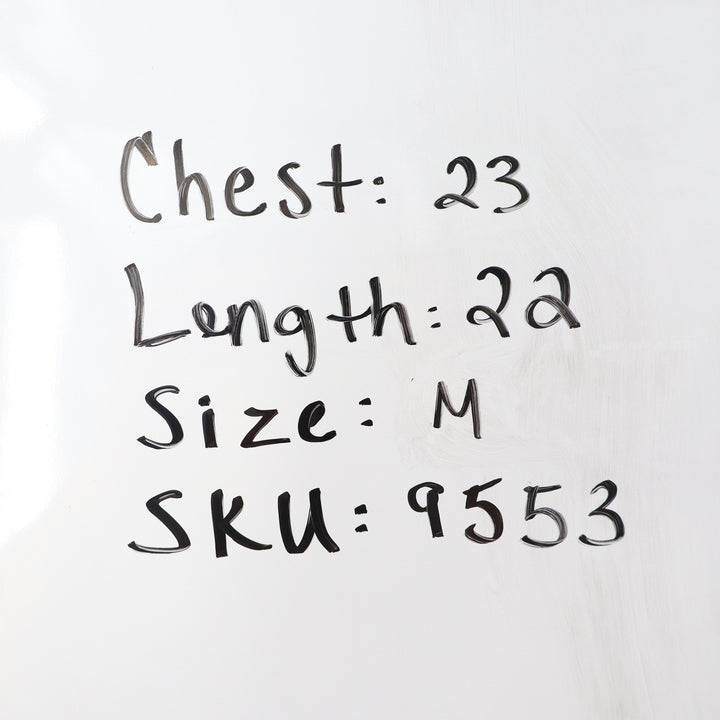 Chest: 23
Length: 22
Size: M
SKU: 9553